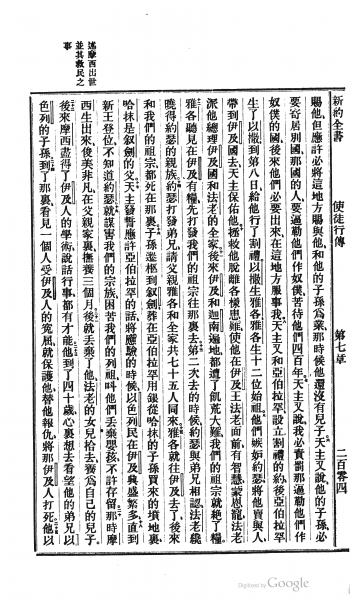 新約全書 使徒行傳 第七章 二百零四
賜他但應許必將這地方賜與他和他的子孫爲業那時候他還沒有兒子天主又說他的子孫必
要寄居別國那國的人要逼勒他們作奴僕苦待他們四百年天主又說我必責罰那逼勒他們作
奴僕的國後來他們必要出來在這地方服事我天主又和亞伯拉罕設立割禮的約後亞伯拉罕
生了以撒到第八日給他行了割禮以撒生雅各雅各生十二位始祖他們嫉妬約瑟將他賣與人
帶到伊及國去天主保佑他拯救他脫離各樣患難使他在伊及王法老面前有智慧蒙恩寵法老
派他總理伊及國和法老的全家後來伊及和迦南遍地都遭了飢荒大難我們的祖宗就絕了糧
雅各聽見在伊及有糧先打發我們的祖宗往那裏去第二次去的時候約瑟與弟兄相認法老纔
曉得約瑟的親族約瑟打發弟兄請父親雅各和全家共七十五人同來雅各就往伊及去了後來
和我們的祖宗都死在那裏子孫遷柩到叙劍葬在亞伯拉罕用銀從哈抹的子孫買來的墳地裏
哈抹是叙劍的父天主發誓應許亞伯拉罕的話將應驗的時候以色列民在伊及興盛繁多直到
新王登位不知道約瑟就謀害我們的宗族困苦我們的列祖叫他們丟棄嬰孩不許存留那時摩
西生出來俊美非凡在父親家裏撫養三個月後就丟棄了他法老的女兒拾去養爲自己的兒子
後來摩西盡得了伊及人的學術說話行事都有才能他到了四十歲心裏想去看望他的弟兄以
色列的子孫到了那裏看見一個人受伊及人的寃屈就保護他替他報仇將那伊及人打死他以
述摩西出世
並其救民之
事
Digitized by Google